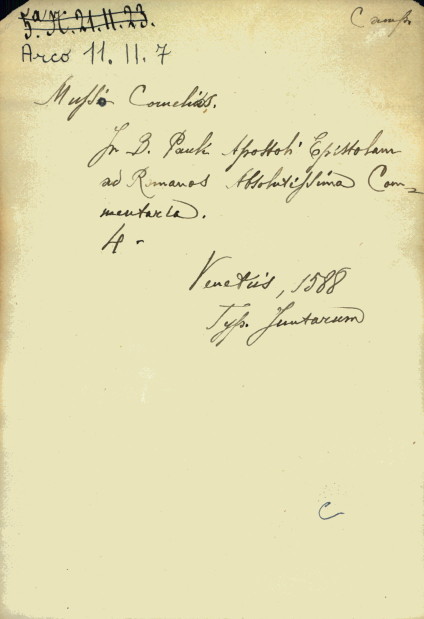 5.a X. 21.11.23.
Camp.
Arco 11.11.7
Musso Cornelius.
In B. Pauli Apostoli Epistolam
ad Romanos Absolutissima Com=
mentaria.
4-
Venetiis, 1588
Typ. Juntarum
C